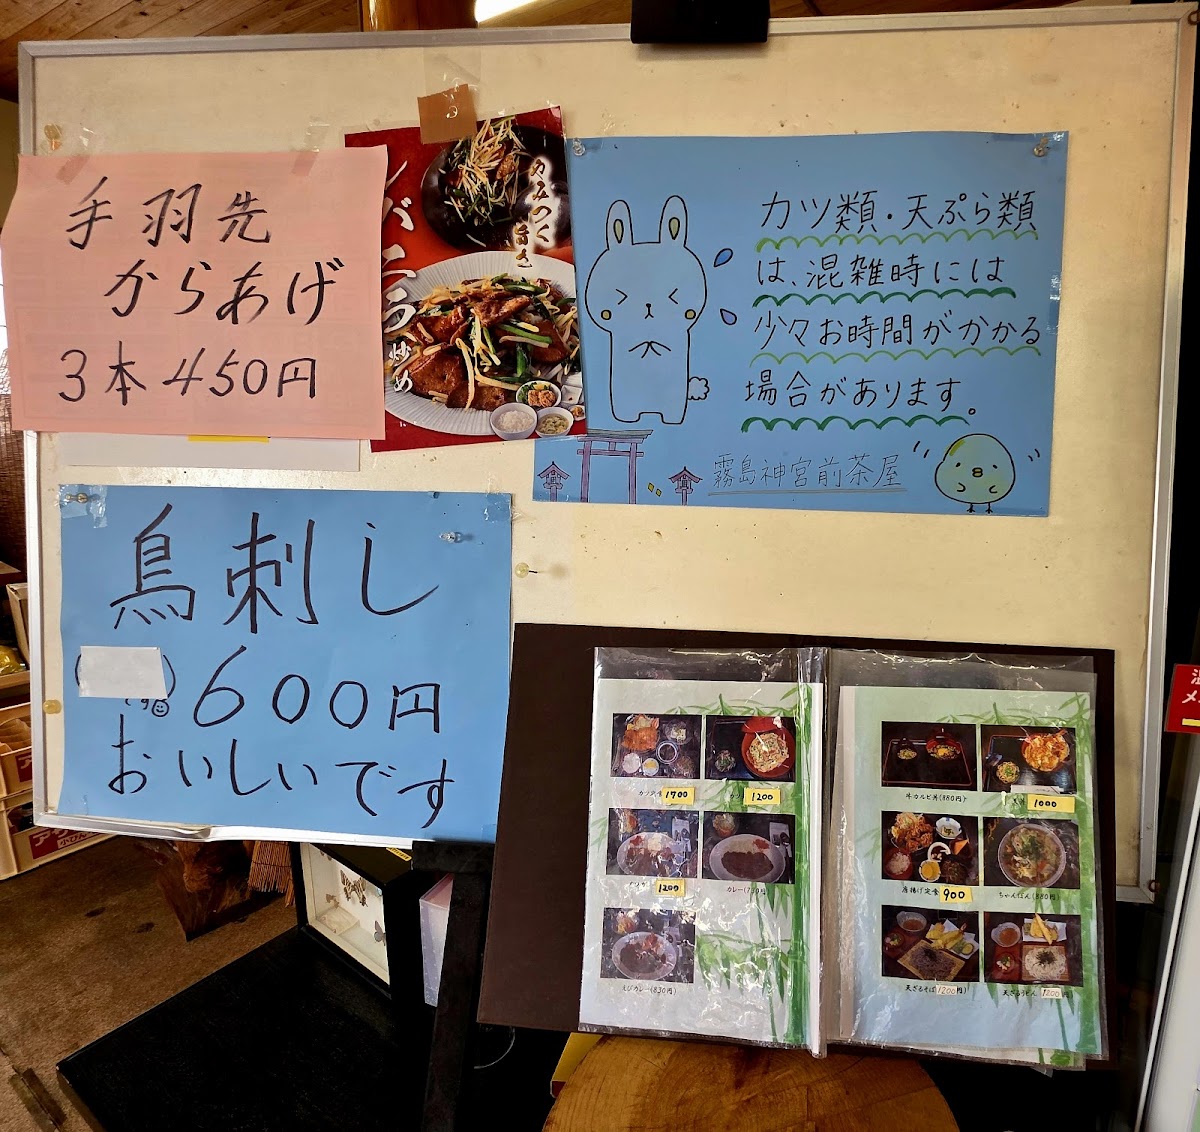 手羽先
からあげ
3本450円
レバニラ炒め
カツ類・天ぷら類
は、混雑時には
少々お時間がかかる
場合があります。
霧島神宮前茶屋
鳥刺し
600円
おいしいです
カツ定食 1700
1200
1200
カレー(730円)
えびカレー(830円)
牛カルビ丼(880円)
1000
唐揚げ定食 900
ちゃんぽん(880円)
天ざるそば(1200円)
天ざるうどん(1200円)